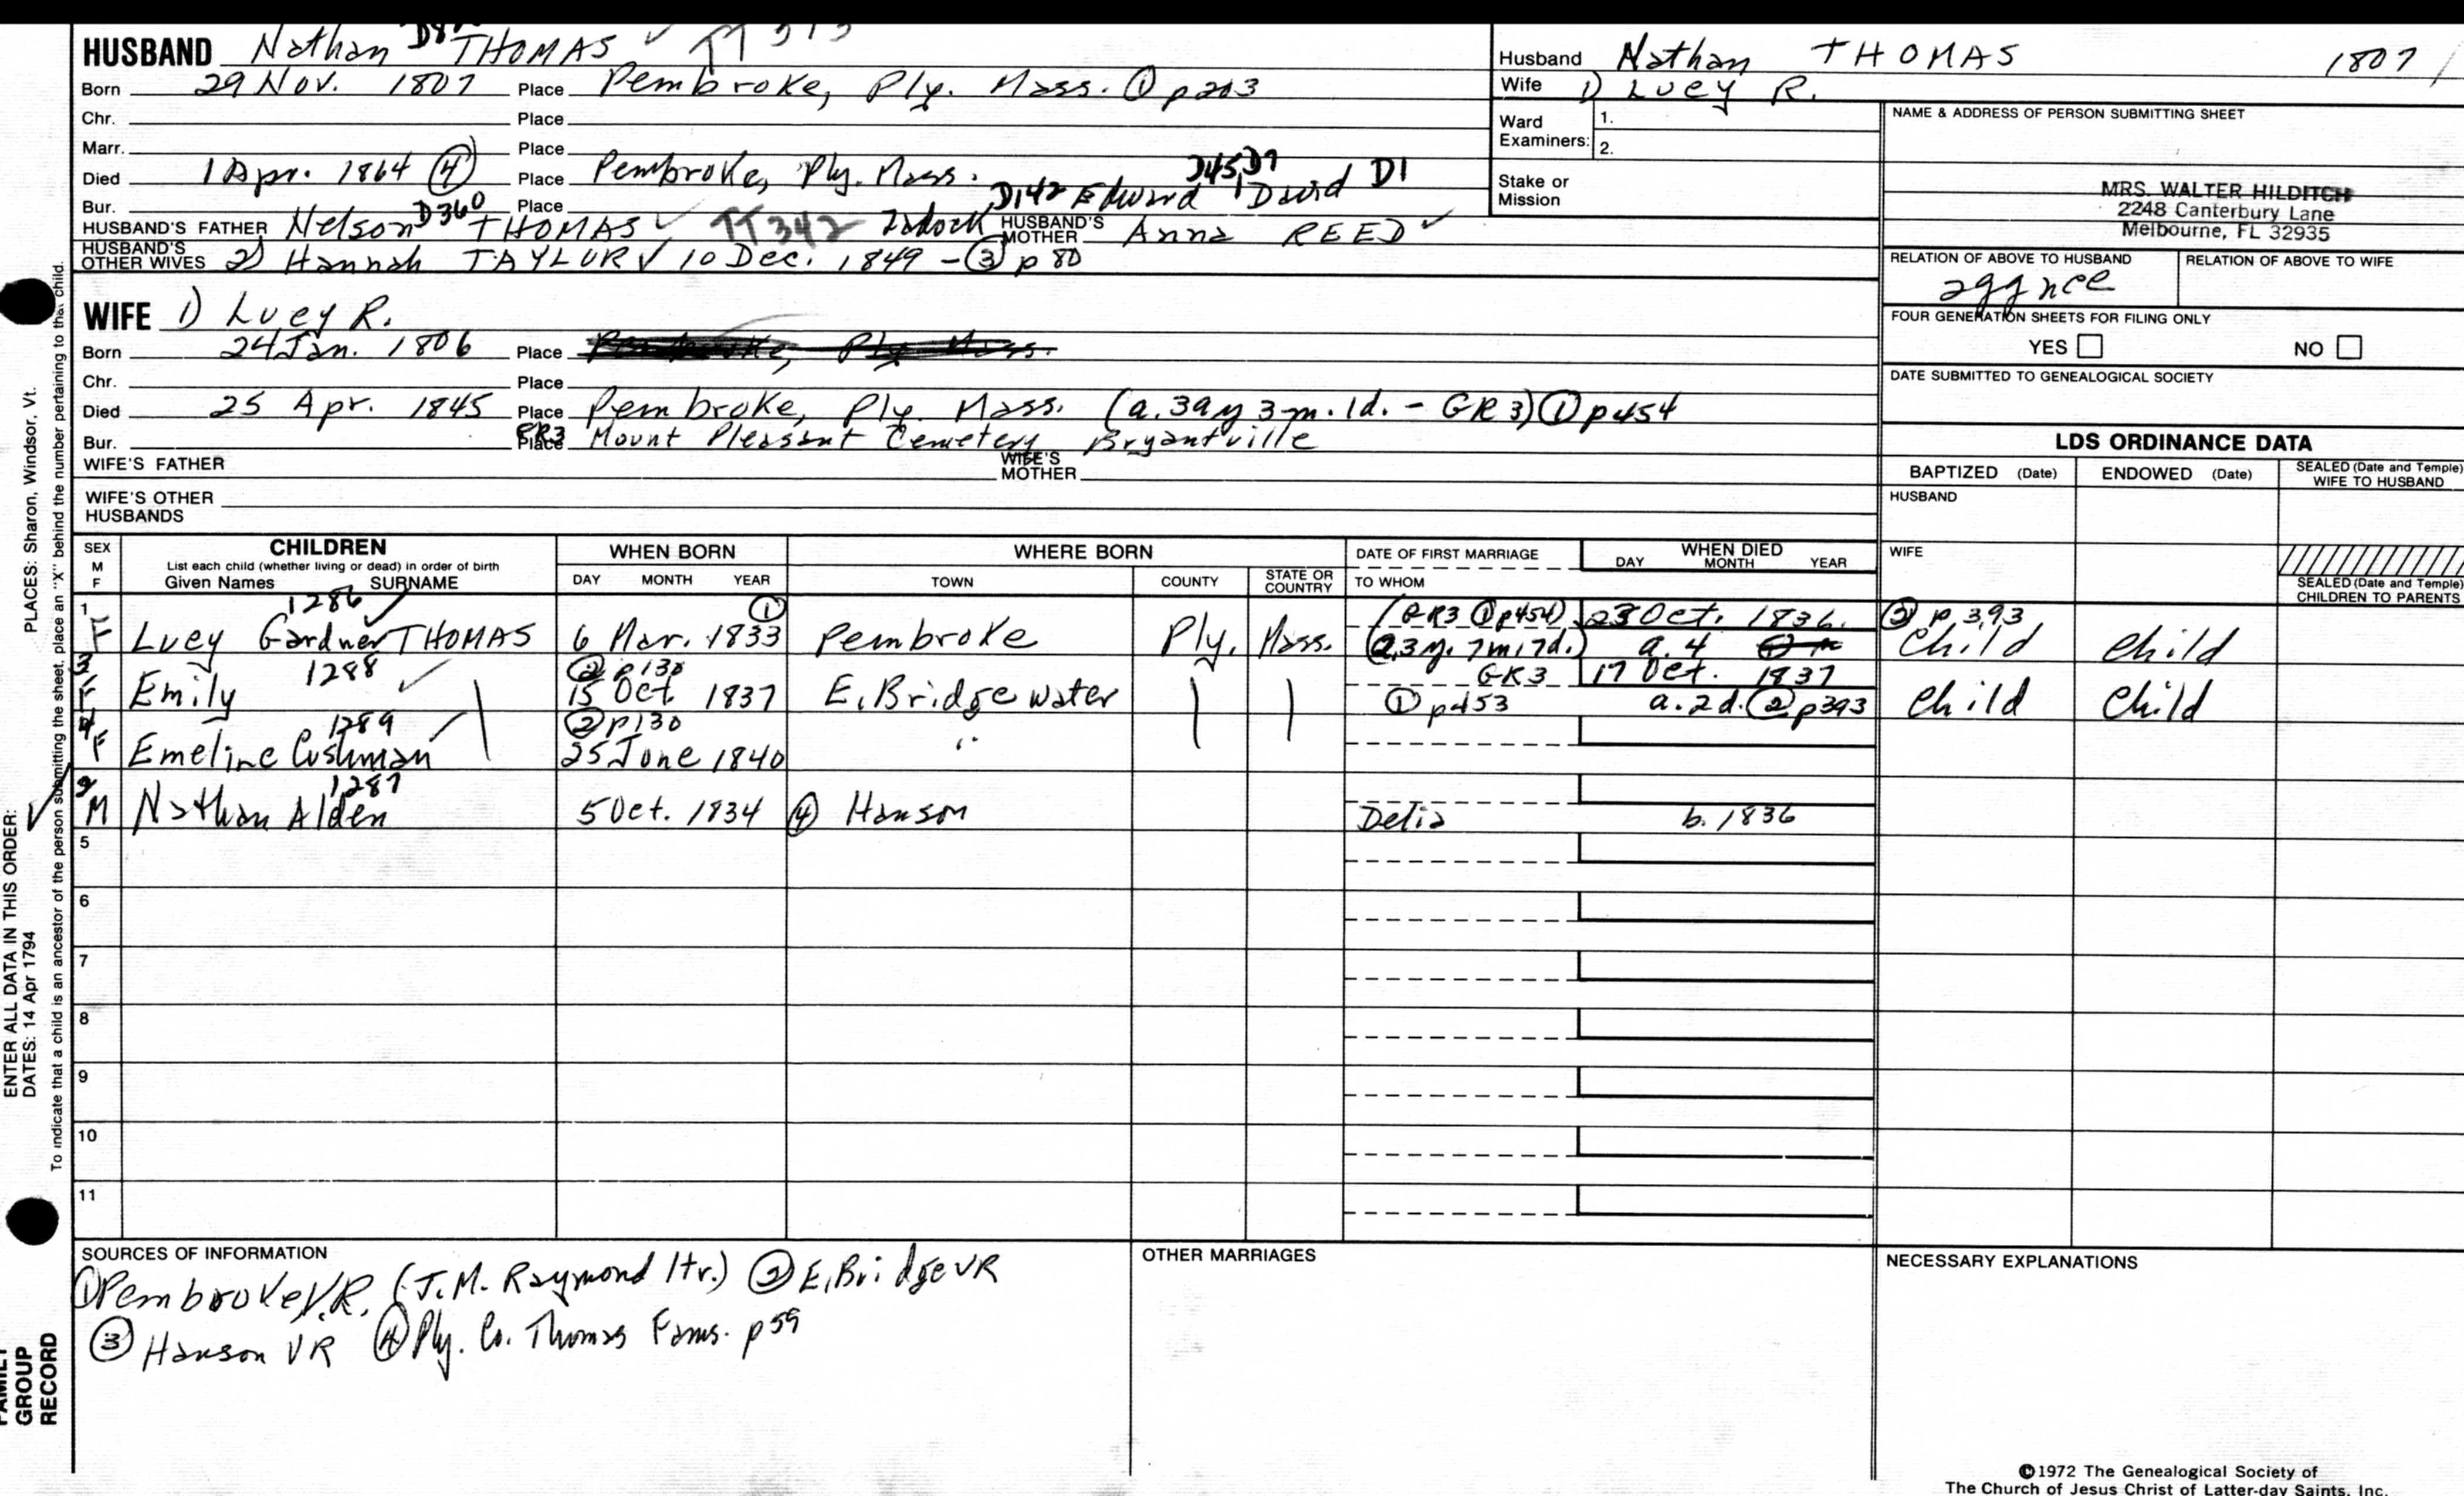 HUSBAND Nathan THOMAS ✓
Born 29 Nov. 1807 Place Pembroke, Ply. Mass. ① p203
Chr. Place
Marr. Place
Died 1 Apr. 1864 ④ Place Pembroke, Ply. Mass.
D142 Edward D45, D9 David D1
Bur. Place
HUSBAND'S FATHER Nelson D360 THOMAS ✓ TT342 Zadock HUSBAND'S MOTHER Anna REED ✓
HUSBAND'S OTHER WIVES 2) Hannah TAYLOR ✓ 10 Dec. 1849 - ③ p 80
WIFE 1) Lucy R.
Born 24 Jan. 1806 Place Pembroke, Ply Mass.
Chr. Place
Died 25 Apr. 1845 Place Pembroke, Ply. Mass. (a. 39y 3m. 1d. - GR3) ① p454
Bur. Place GR3 Mount Pleasant Cemetery Bryantville
WIFE'S FATHER WIFE'S MOTHER
WIFE'S OTHER HUSBANDS
Husband Nathan THOMAS 1807
Wife 1) Lucy R.
Ward Examiners: 1.
2.
Stake or Mission
NAME & ADDRESS OF PERSON SUBMITTING SHEET
MRS. WALTER HILDITCH
2248 Canterbury Lane
Melbourne, FL 32935
RELATION OF ABOVE TO HUSBAND RELATION OF ABOVE TO WIFE
FOUR GENERATION SHEETS FOR FILING ONLY
YES NO
DATE SUBMITTED TO GENEALOGICAL SOCIETY
LDS ORDINANCE DATA
BAPTIZED (Date) ENDOWED (Date) SEALED (Date and Temple) WIFE TO HUSBAND
HUSBAND
WIFE
SEALED (Date and Temple) CHILDREN TO PARENTS
SEX M F
CHILDREN
List each child (whether living or dead) in order of birth
Given Names SURNAME
WHEN BORN
DAY MONTH YEAR
WHERE BORN
TOWN COUNTY STATE OR COUNTRY
DATE OF FIRST MARRIAGE
TO WHOM
WHEN DIED
DAY MONTH YEAR
1 1286 ✓ ① (GR3 ① p454) 23 Oct. 1836. ② p 393
F Lucy Gardner THOMAS 6 Mar. 1833 Pembroke Ply. Mass. (a. 3y. 7m 17d.) a. 4 Child Child
3 1288 ✓ ② p130 GR3 17 Oct. 1837
F Emily 15 Oct 1837 E. Bridgewater ① p453 a. 2d. ② p393 Child Child
4 1289 ✓ ② p130
F Emeline Cushman 25 June 1840 "
2 1287
M Nathan Alden 5 Oct. 1834 ④ Hanson Delia b. 1836
5
6
7
8
9
10
11
SOURCES OF INFORMATION
① Pembroke V.R. (J.M. Raymond ltr.) ② E. Bridge VR
③ Hanson VR ④ Ply. Co. Thomas Fams. p 59
OTHER MARRIAGES
NECESSARY EXPLANATIONS
©1972 The Genealogical Society of
The Church of Jesus Christ of Latter-day Saints, Inc.
ENTER ALL DATA IN THIS ORDER:
DATES: 14 Apr 1794 PLACES: Sharon, Windsor, Vt.
To indicate that a child is an ancestor of the person submitting the sheet, place an "X" behind the number pertaining to that child.
FAMILY
GROUP
RECORD